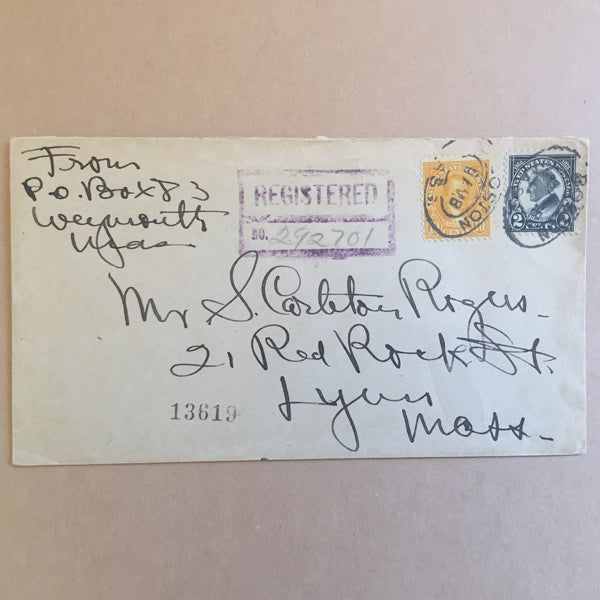 From
P.O. Box 83
Weymouth
Mass
REGISTERED
NO. 292701
BOSTON
2 2
Mr S. Carleton Rogers
21 Red Rock St.
Lynn
Mass.
13619